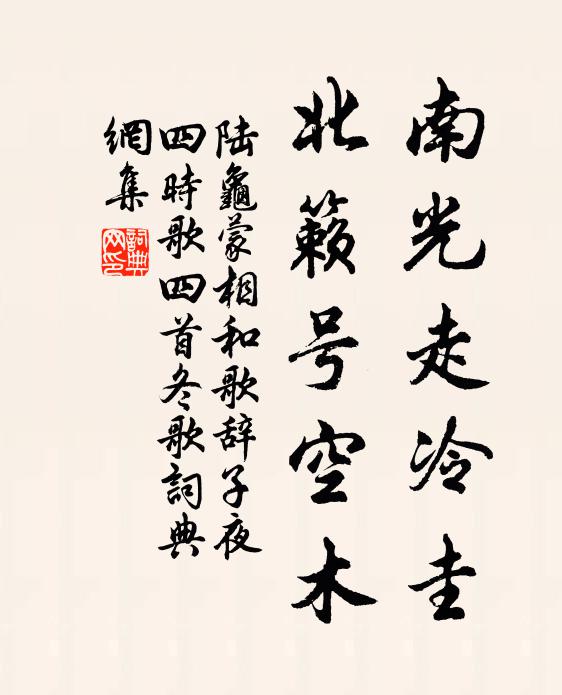 南光走冷圭
北籁号空木
陆龜蒙相和歌辞子夜
四時歌四首冬歌詞典
網集
詞典網印